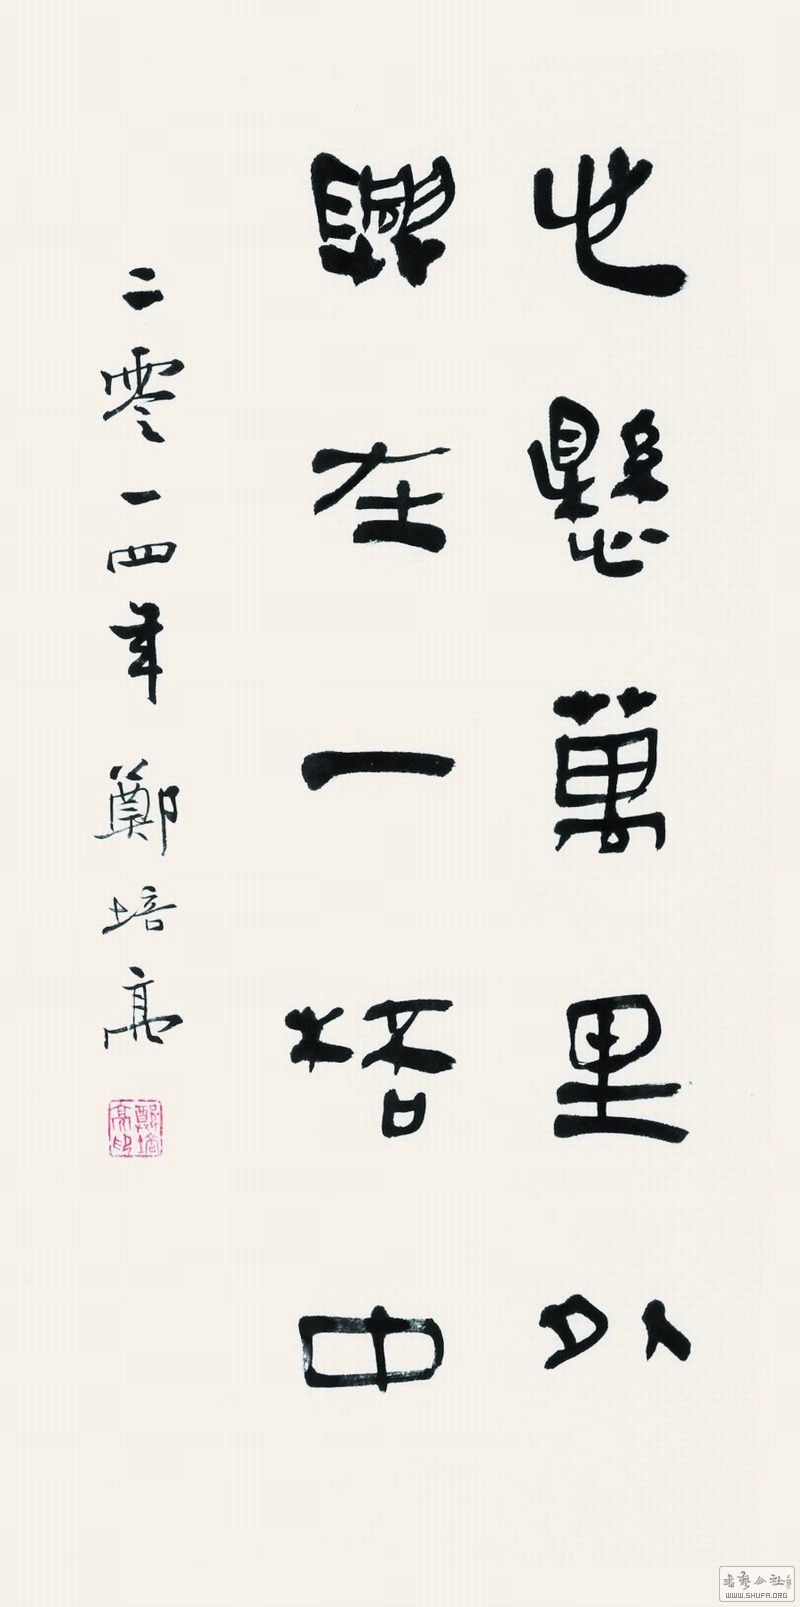 心懸萬里外
興在一桮中
二零一四年 鄭培亮
鄭培亮印
書藝公社
WWW.SHUFA.ORG